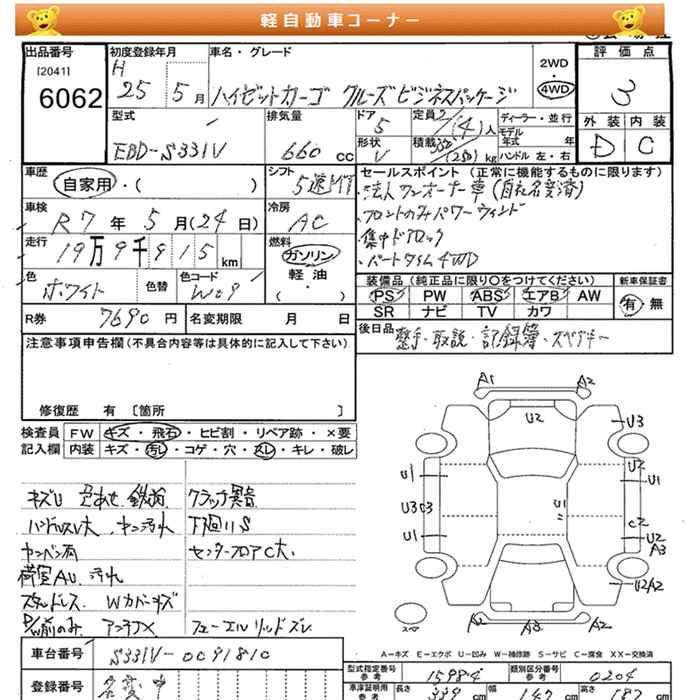 軽自動車コーナー
出品番号
[2041]
6062
初度登録年月
H
25 5月
車名・グレード
ハイゼットカーゴ クルーズビジネスパッケージ
2WD
4WD
評価点
3
型式
EBD-S331V
排気量
660 cc
ドア
5
形状
V
定員
2/(4)人
積載
350/(250) kg
ディーラー・並行
モデル年式 年
ハンドル 左・右
外装 内装
D C
車歴
自家用・( )
シフト
5速MT
セールスポイント (正常に機能するものに限ります)
・法人ワンオーナー車(自社名変済)
・フロントのみパワーウィンド
・集中ドアロック
・パートタイム4WD
車検
R7年5月(24日)
冷房
AC
走行
19万9千915km
燃料
ガソリン
軽油
( )
色
ホワイト
色替
色コード
W09
装備品 (純正品に限り〇をつけてください)
PS PW ABS エアB AW
SR ナビ TV カワ
新車保証書
有・無
R券 7690円
名変期限 月 日
後日品
整手・取説・記録簿・スペアキー
注意事項申告欄(不具合内容等は具体的に記入して下さい)
修復歴 有 [箇所 ]
検査員
記入欄
FW キズ・飛石・ヒビ割・リペア跡・×要
内装 キズ・汚レ・コゲ・穴・スレ・キレ・破レ
キズU
クラック異音
ハンドルスレ大
下廻りS
センターフロアC大
荷室AU 汚れ
スタッドレス Wカバーキズ
P/W前のみ アンテナX
フューエルリッドズレ
A1 A2
U2
U3
U1 U2 U1
U3 C3 U1
U1 C2 U2 A3
U2A2
A2 A3 A2
スペア
A－キズ E－エクボ U－凹み W－補修跡 S－サビ C－腐食 XX－交換済
車台番号
S331V-0091810
型式指定番号
参考
15984
類別区分番号
参考
0204
登録番号
名変中
車庫証明用
参考
長さ 339 cm
幅 147 cm
高さ 187 cm